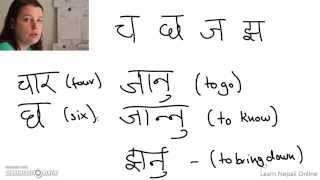 च छ ज झ
चार (four) जानु (to go)
छ (six) जान्नु (to know)
झर्नु - (to bring down)
Learn Nepali Online